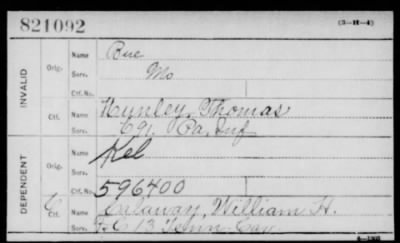 821092
(3-H-4)
INVALID
Orig.
Name Bue
Serv. Mo
Ctf. No.
Ctf.
Name Hunley, Thomas
Serv. C 91 Pa. Inf
DEPENDENT
Orig.
Name Kel
Serv.
Ctf. No. 596400
C Ctf.
Name Calaway, William H.
Serv. C 13 Tenn. Cav